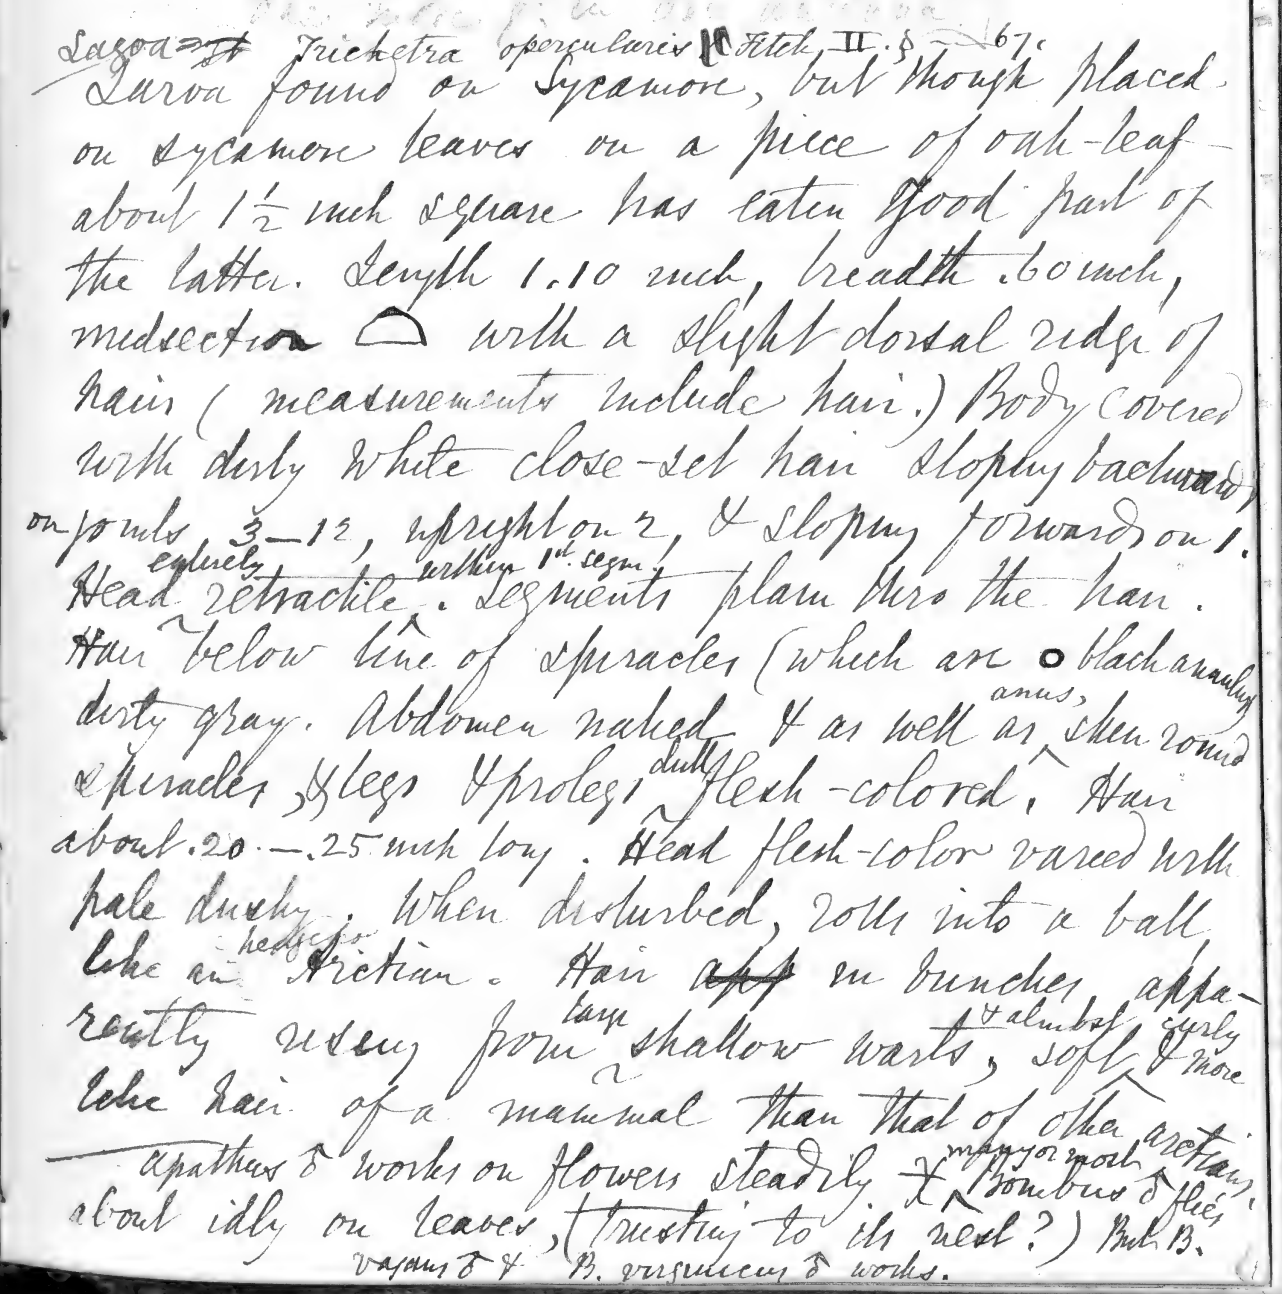 Lagoa Trichetra opercularis Fitch, II. § — 67.
Larva found on Sycamore, but though placed
on sycamore leaves on a piece of oak-leaf
about 1½ inch square has eaten good part of
the latter. Length 1.10 inch, breadth .60 inch,
midsection with a slight dorsal ridge of
hairs (measurements include hair.) Body covered
with dirty white close-set hair sloping backward,
on joints 3—12, upright on 2, & sloping forwards on 1.
entirely within 1st. segm.
Head retractile. Segments plain thro the hair.
Hair below line of spiracles (which are o black annulus
anus,
dirty gray. Abdomen naked & as well as, skin round
dull
spiracles, & legs & prolegs flesh-colored. Hair
about .20—.25 inch long. Head flesh-color varied with
pale dusky. When disturbed, rolls into a ball
hedgehog
like an Arctian. Hair app in bunches, appa-
large & almost curly
rently rising from shallow warts, soft, & more
like hair of a mammal than that of other arctians.
many or most
apathus ♂ works on flowers steadily Bombus ♂ flies
about idly on leaves, (trusting to its nest?) But B.
vagans ♂ & B. virginicus ♂ works.